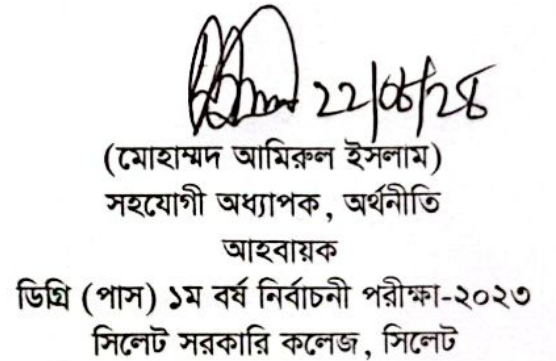 (মোহাম্মদ আমিরুল ইসলাম)
সহযোগী অধ্যাপক, অর্থনীতি
আহবায়ক
ডিগ্রি (পাস) ১ম বর্ষ নির্বাচনী পরীক্ষা-২০২৩
সিলেট সরকারি কলেজ, সিলেট